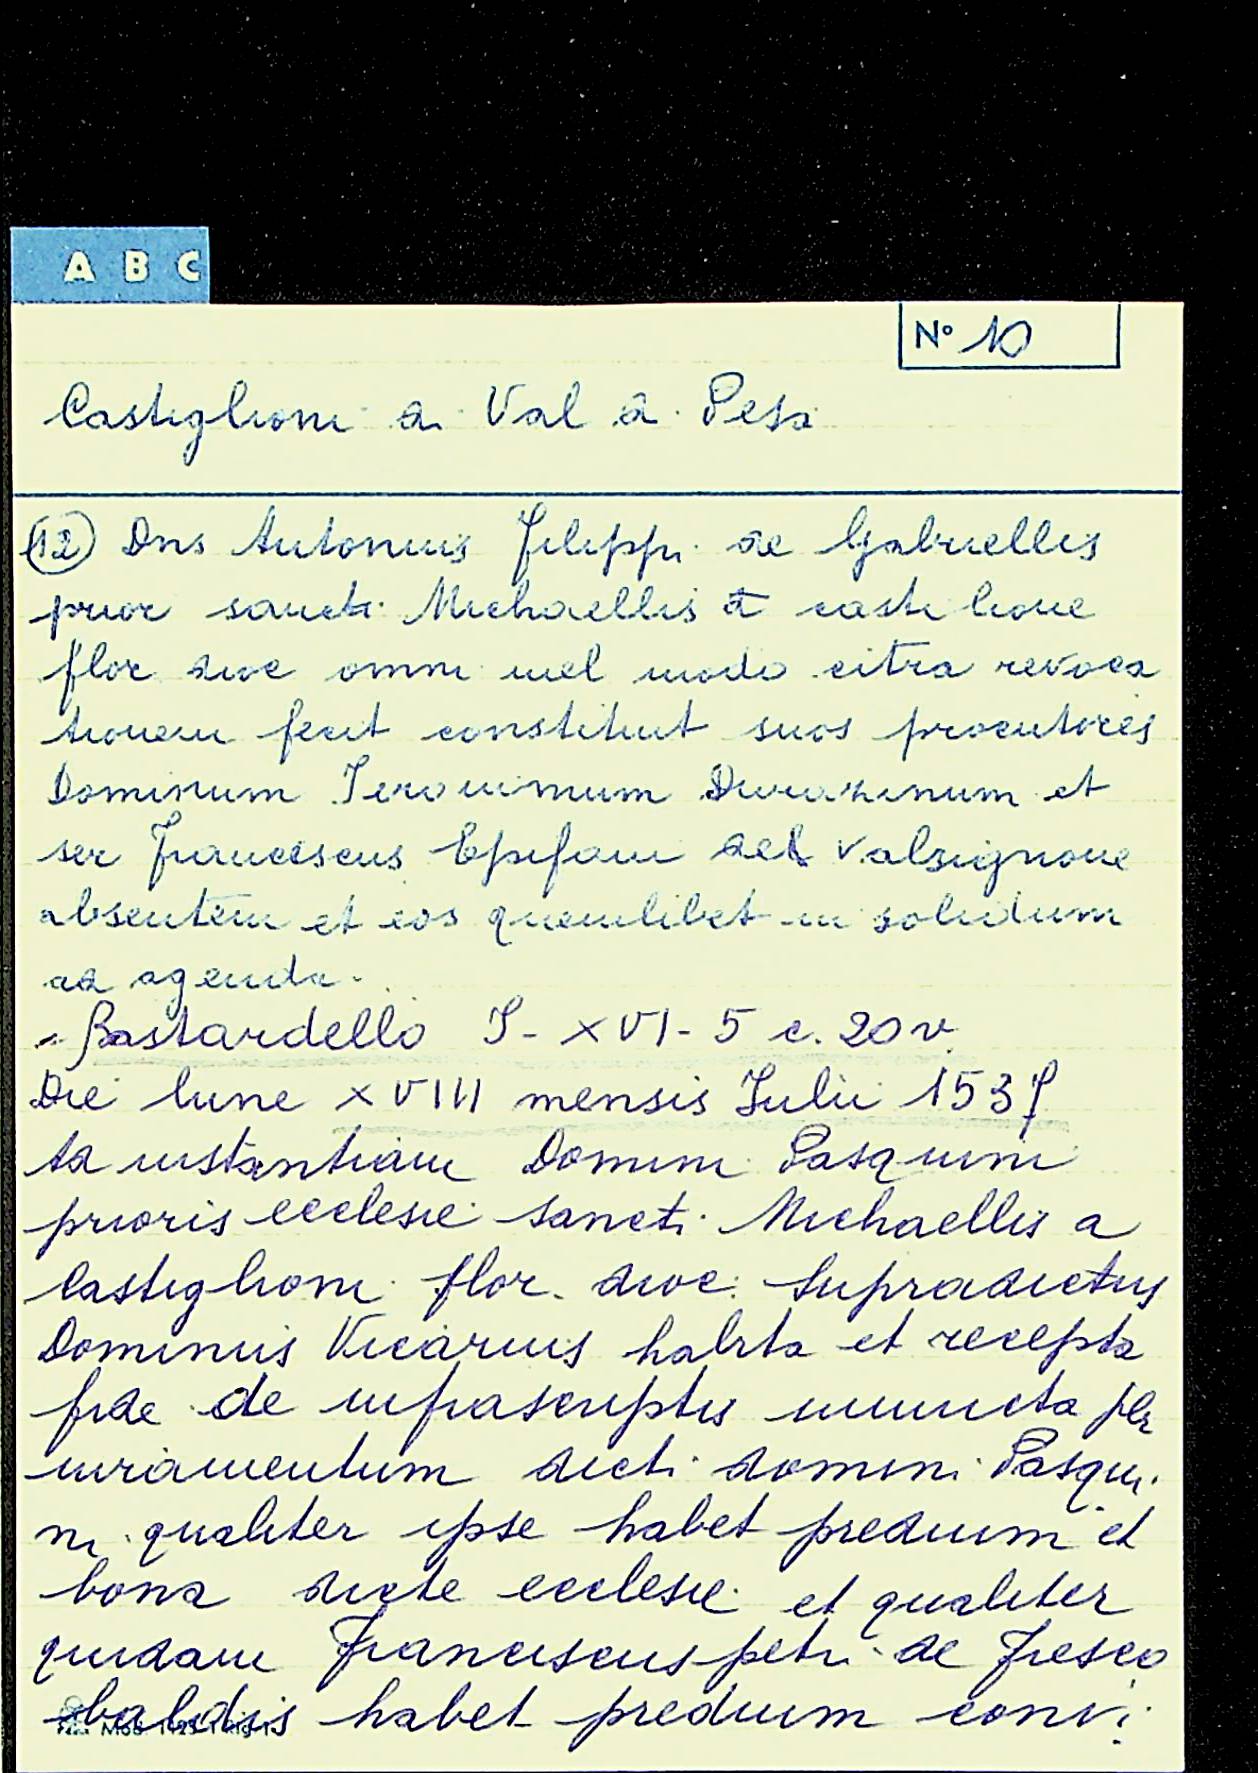 A B C
N° 10
Castiglioni di Val di Pesa
(12) Dns Antonius Filippi de Gabriellis
prior sancti Michaellis a castilione
flor dioc omni mel modo citra revoca
tionem fecit constituit suos procutores
Dominum Ieronimum Durazinum et
ser Francescus Epifani del Valsignone
absentem et eos quemlibet in solidum
ad agenda.
Bastardello I- XVI- 5 c. 20 v.
Die lune XVIII mensis Iulii 1537
Ad instantiam Domini Pasquini
prioris ecclesie sancti Michaellis a
Castiglioni flor. dioc. Supradictus
Dominus Vicarius habita et recepta
fide de infrascriptis iuncta per
iuramentum dicti domini Pasqui
ni qualiter ipse habet predium et
bona dicte ecclesie et qualiter
quidam Franciscus petri de Fresco
baldis habet predium convi